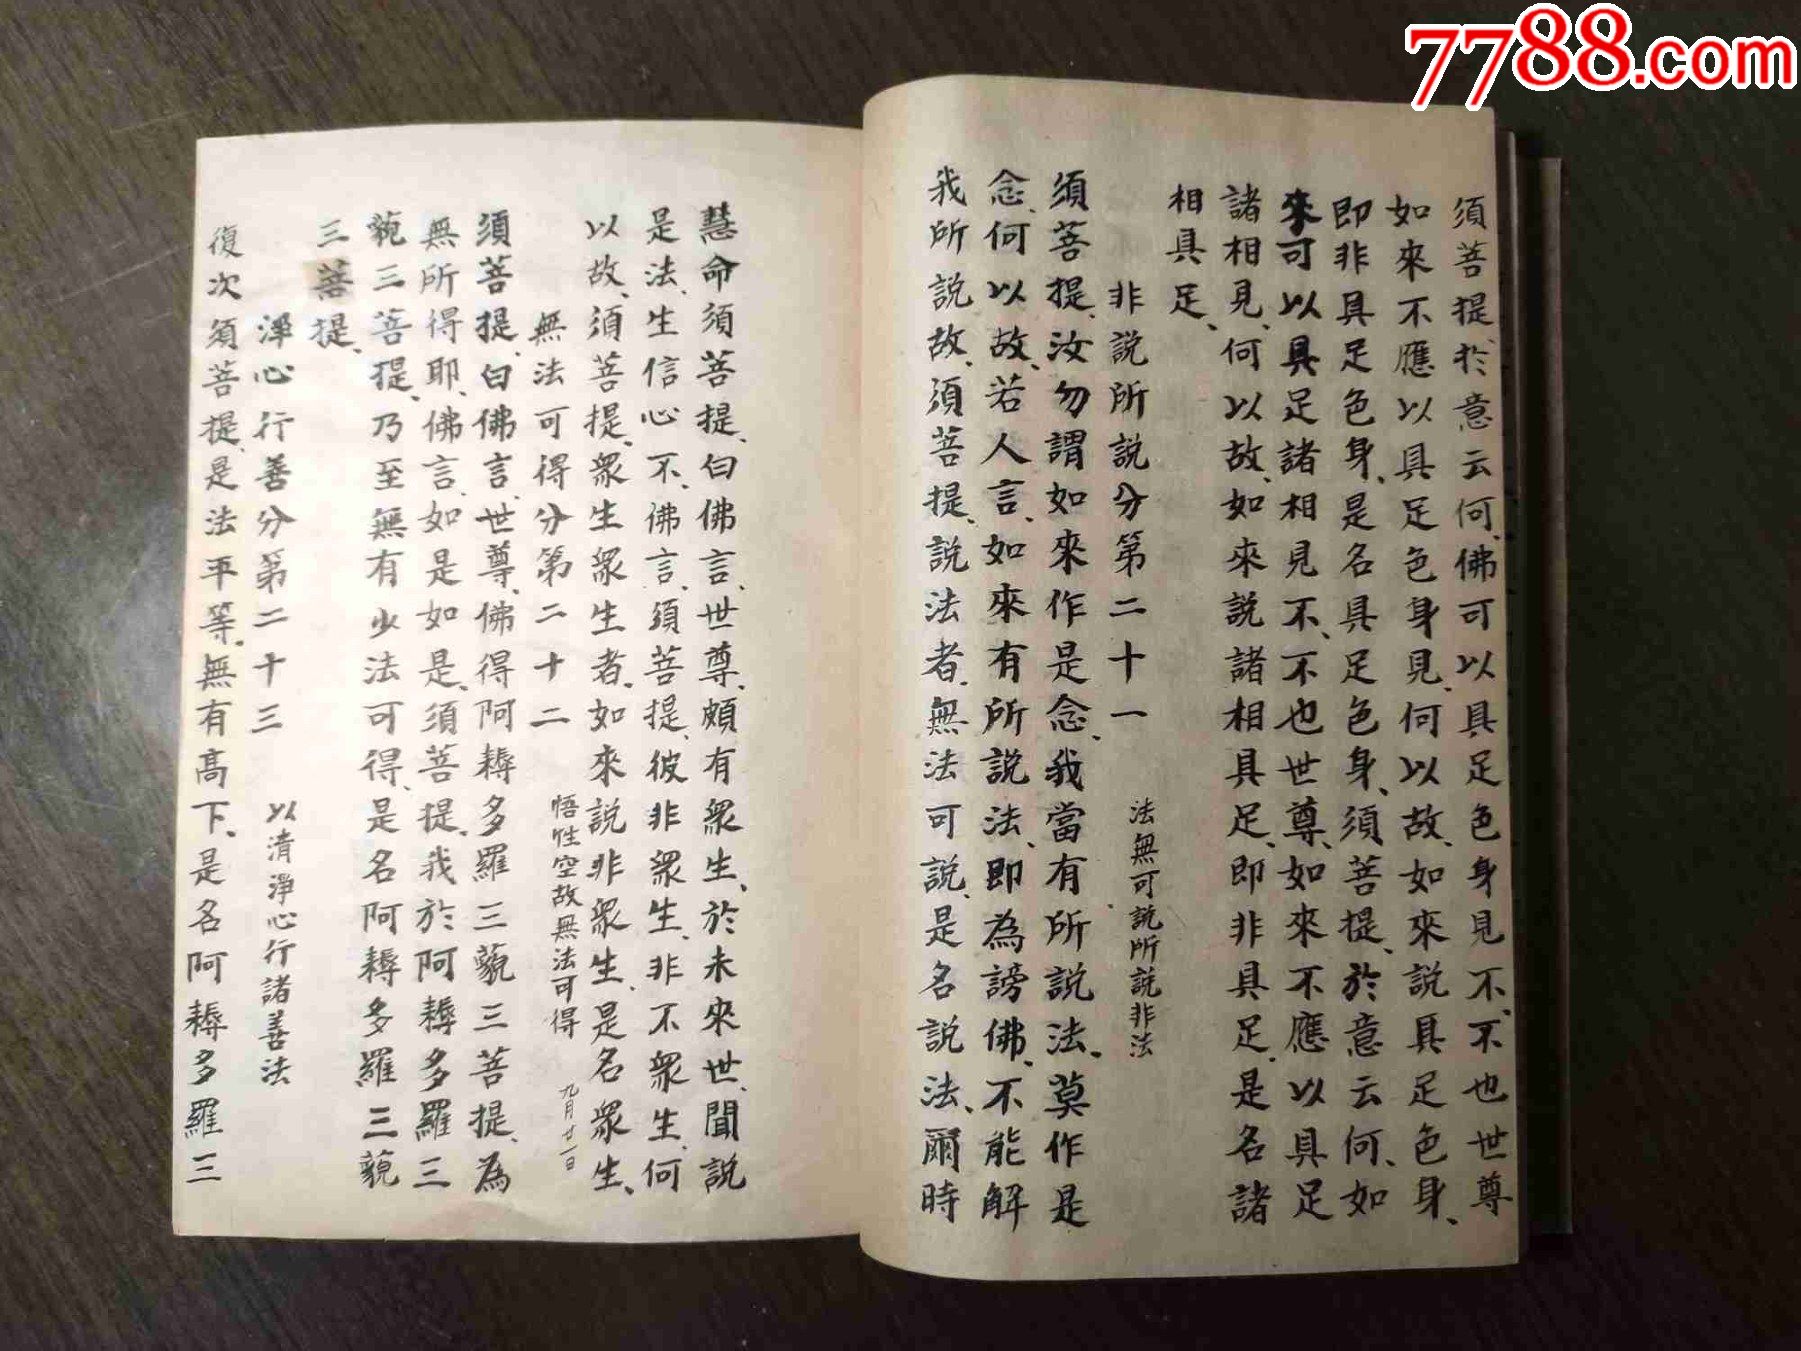 7788.com
須菩提、於意云何、佛可以具足色身見不、不也世尊
如來不應以具足色身見、何以故、如來説具足色身、
即非具足色身、是名具足色身、須菩提、於意云何、如
來可以具足諸相見不、不也世尊、如來不應以具足
諸相見、何以故、如來説諸相具足、即非具足、是名諸
相具足、
非説所説分第二十一 法無可説所説非法
須菩提、汝勿謂如來作是念、我當有所説法、莫作是
念、何以故、若人言、如來有所説法、即為謗佛、不能解
我所説故、須菩提、説法者、無法可説、是名説法、爾時
慧命須菩提、白佛言、世尊、頗有衆生、於未來世、聞説
是法、生信心不、佛言、須菩提、彼非衆生、非不衆生、何
以故、須菩提、衆生衆生者、如來説非衆生、是名衆生、
無法可得分第二十二 悟性空故無法可得 九月廿一日
須菩提、白佛言、世尊、佛得阿耨多羅三藐三菩提、為
無所得耶、佛言、如是如是、須菩提、我於阿耨多羅三
藐三菩提、乃至無有少法可得、是名阿耨多羅三藐
三菩提、
淨心行善分第二十三 以清淨心行諸善法
復次須菩提、是法平等、無有高下、是名阿耨多羅三